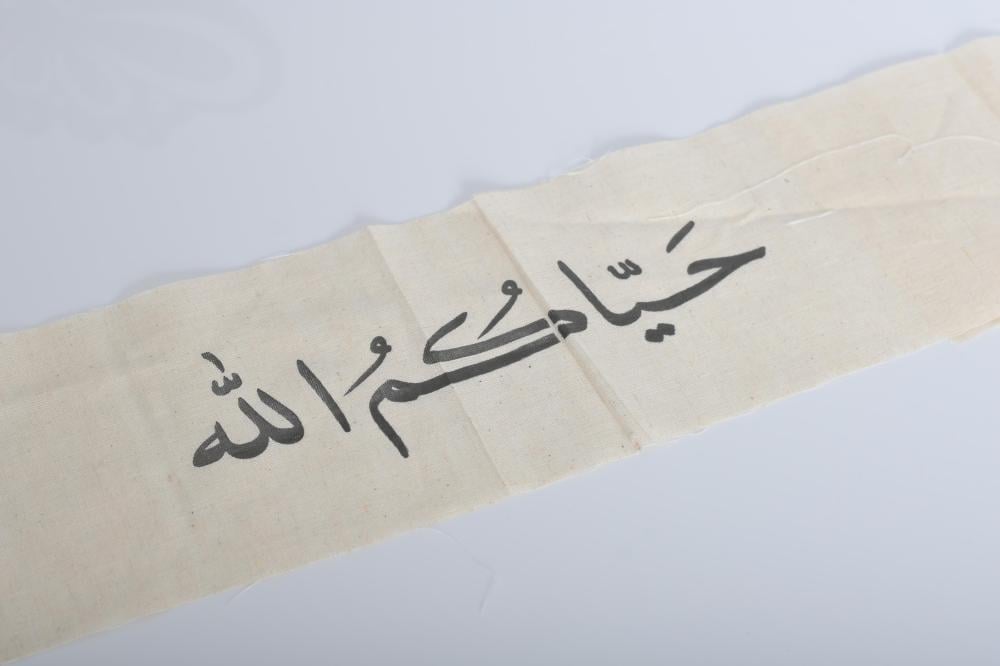 حَيَّاكُمُ اللّٰه